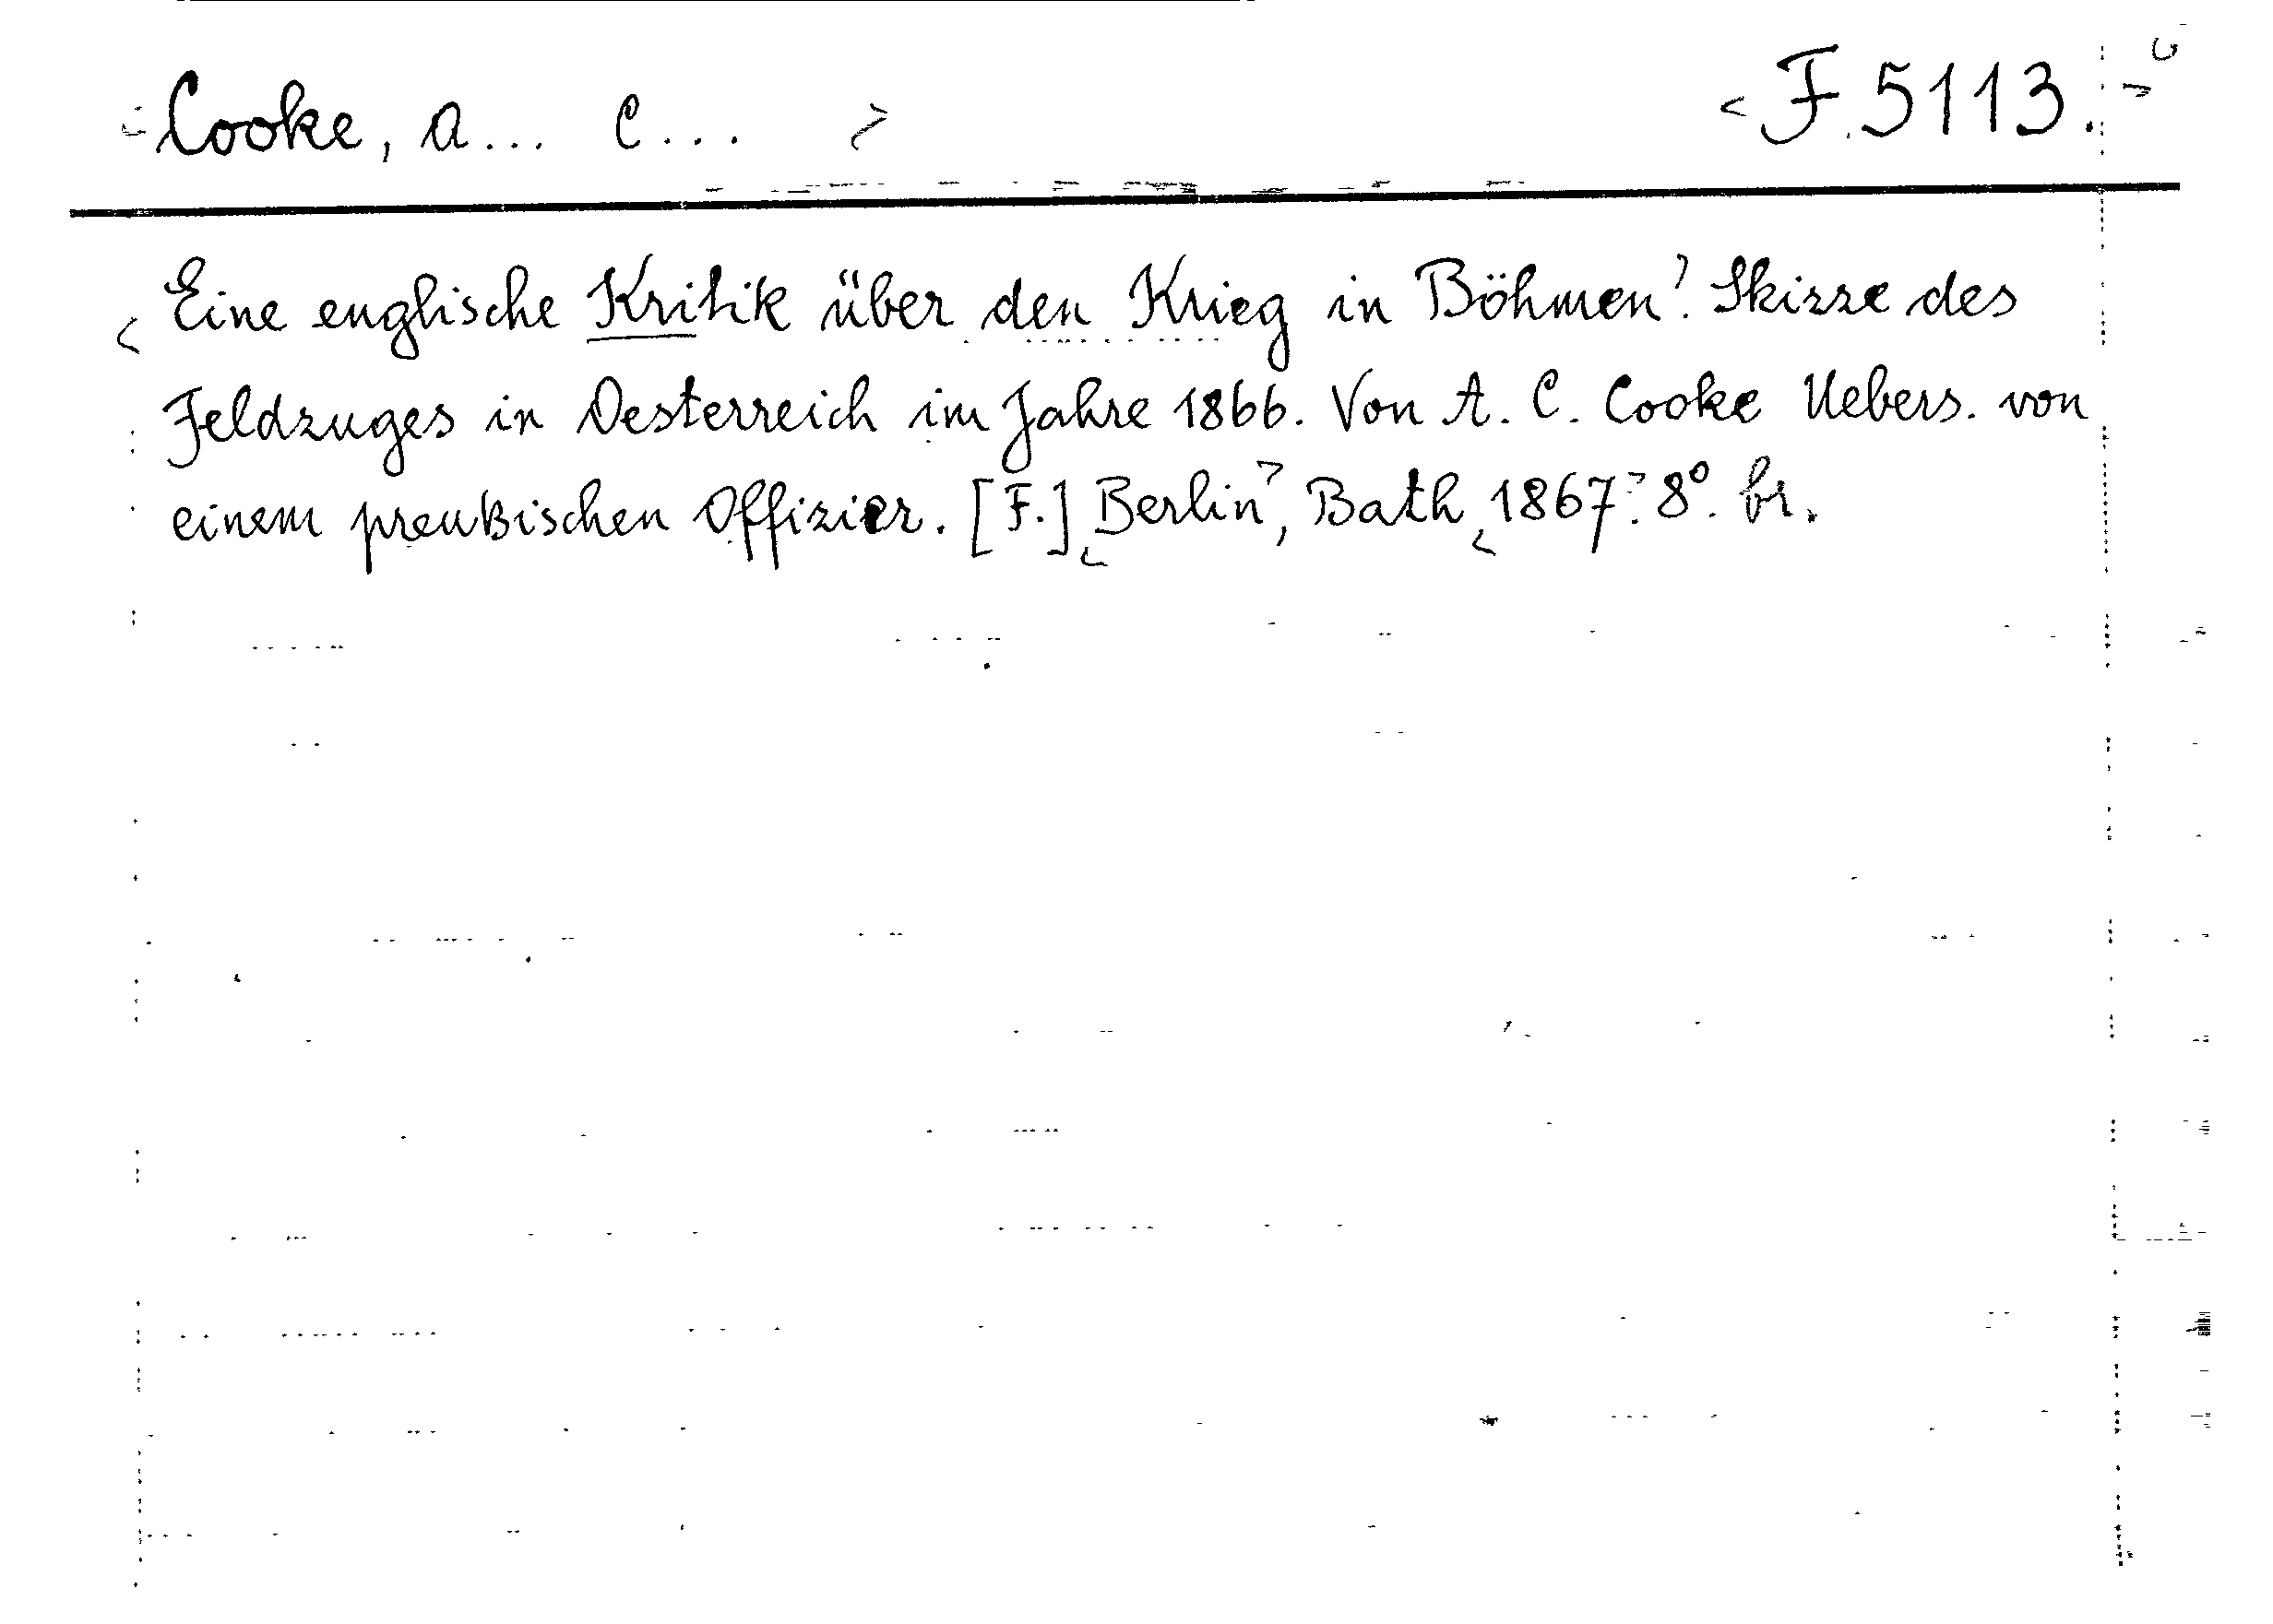 Cooke, A... C... <F.5113.>
Eine englische Kritik über den Krieg in Böhmen. Skizze des
Feldzuges in Oesterreich im Jahre 1866. Von A. C. Cooke Uebers. von
einem preußischen Offizier. [F.] Berlin, Bath 1867. 8°. br.